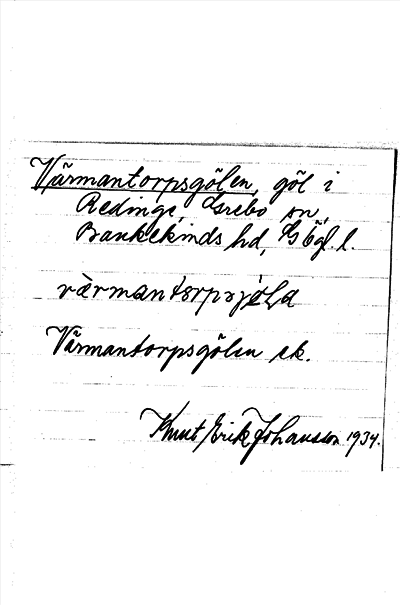 Värmantorpsgölen, göl i
Redinge, Grebo sn,
Bankekinds hd, Ögl. l.
värmantorpsjö̀la
Värmantorpsgölen ek.
Knut Erik Johansson 1934.